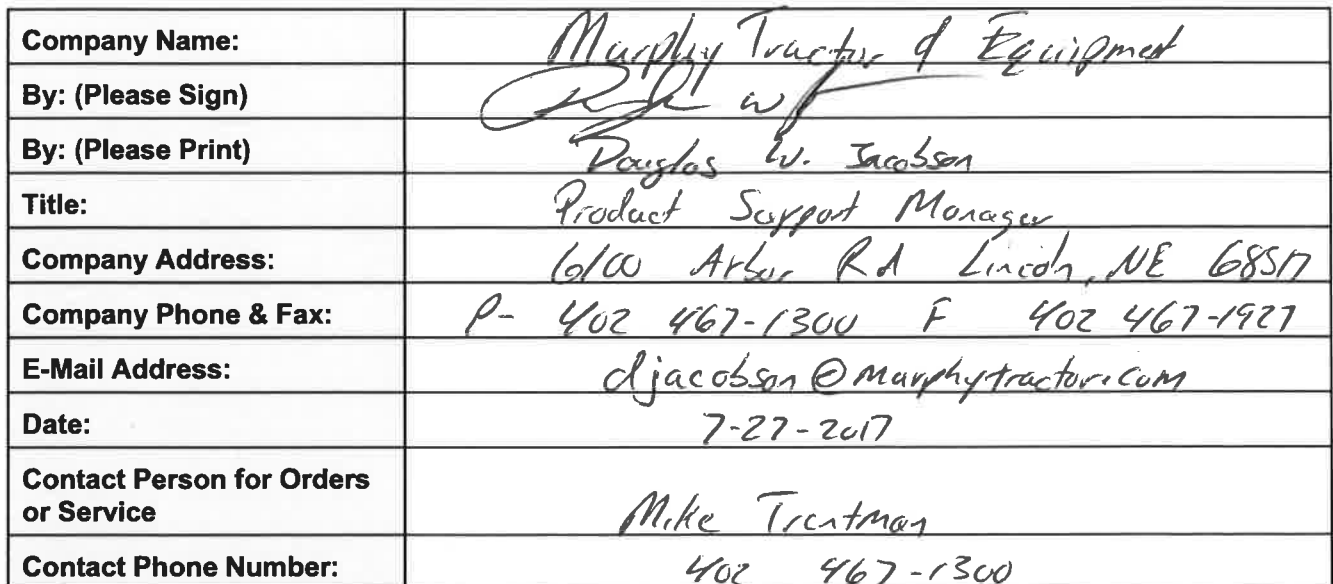 Company Name: Murphy Tractor & Equipment
By: (Please Sign)
By: (Please Print) Douglas W. Jacobson
Title: Product Support Manager
Company Address: 6100 Arbor Rd Lincoln, NE 68517
Company Phone & Fax: P- 402 467-1300 F 402 467-1927
E-Mail Address: djacobson@murphytractor.com
Date: 7-27-2017
Contact Person for Orders
or Service Mike Trentman
Contact Phone Number: 402 467-1300